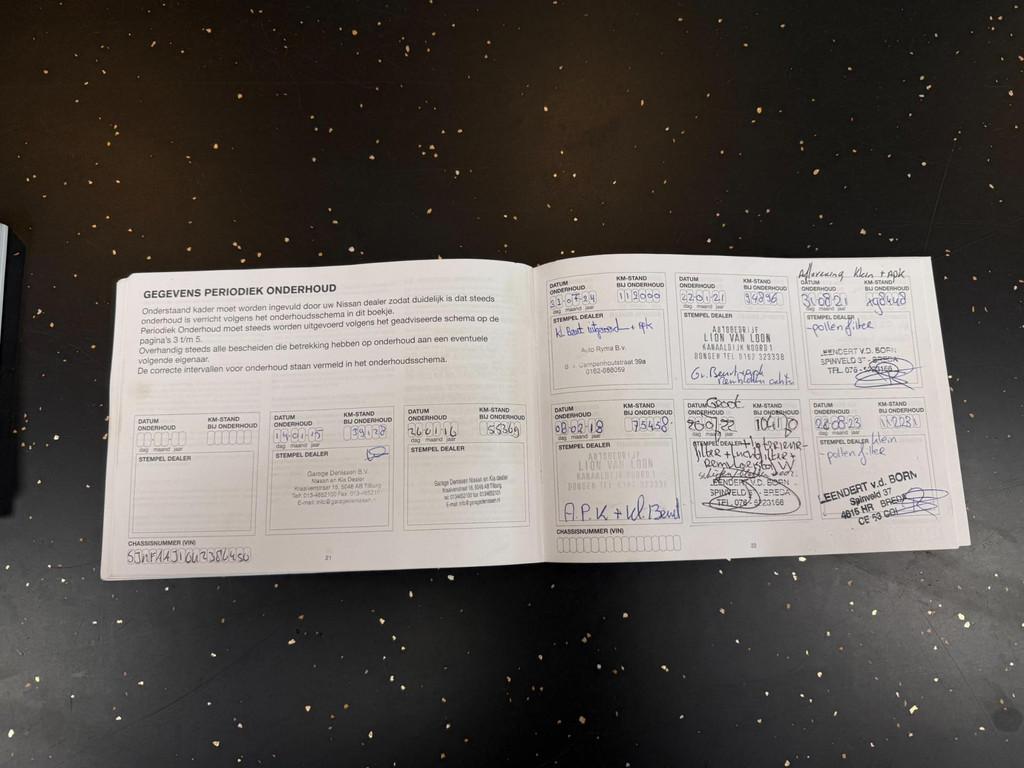 GEGEVENS PERIODIEK ONDERHOUD
Onderstaand kader moet worden ingevuld door uw Nissan dealer zodat duidelijk is dat steeds
onderhoud is verricht volgens het onderhoudsschema in dit boekje.
Periodiek Onderhoud moet steeds worden uitgevoerd volgens het geadviseerde schema op de
pagina's 3 t/m 5.
Overhandig steeds alle bescheiden die betrekking hebben op onderhoud aan een eventuele
volgende eigenaar.
De correcte intervallen voor onderhoud staan vermeld in het onderhoudsschema.
DATUM ONDERHOUD
KM-STAND BIJ ONDERHOUD
dag maand jaar
STEMPEL DEALER
DATUM ONDERHOUD
KM-STAND BIJ ONDERHOUD
140115 39128
dag maand jaar
STEMPEL DEALER
Garage Denissen B.V.
Nissan en Kia Dealer
Kraaivenstraat 16, 5048 AB Tilburg
DATUM ONDERHOUD
KM-STAND BIJ ONDERHOUD
260116 55369
dag maand jaar
STEMPEL DEALER
Garage Denissen Nissan en Kia dealer
Kraaivenstraat 16, 5048 AB Tilburg
CHASSISNUMMER (VIN)
21
DATUM ONDERHOUD
KM-STAND BIJ ONDERHOUD
112000
dag maand jaar
STEMPEL DEALER
Kl. Beurt uitgevoerd + apk
Auto Ryma B.V.
39a
DATUM ONDERHOUD
KM-STAND BIJ ONDERHOUD
220121 94896
dag maand jaar
STEMPEL DEALER
AUTOBEDRIJF
LION VAN LOON
KANAALDIJK NOORD 1
DONGEN TEL 0162 323338
Gr. Beurt + apk
Remblokken achter
Aflevering Klein + apk
DATUM ONDERHOUD
KM-STAND BIJ ONDERHOUD
310821 98448
dag maand jaar
STEMPEL DEALER
-pollenfilter
LEENDERT V.D. BORN
SPINVELD 37 - BREDA
TEL. 076 - 5223166
DATUM ONDERHOUD
KM-STAND BIJ ONDERHOUD
080218 75458
dag maand jaar
STEMPEL DEALER
AUTOBEDRIJF
LION VAN LOON
KANAALDIJK NOORD 1
DONGEN TEL 0162 323338
A.P.K + Kl. Beurt
Groot
DATUM ONDERHOUD
KM-STAND BIJ ONDERHOUD
dag maand jaar
STEMPEL DEALER
+ Interieur-
filter + luchtfilter +
Remvloeistof
LEENDERT V.D. BORN
SPINVELD 37 - BREDA
TEL. 076 - 5223166
DATUM ONDERHOUD
KM-STAND BIJ ONDERHOUD
dag maand jaar
STEMPEL DEALER
klein
- pollenfilter
LEENDERT v.d. BORN
Spinveld 37
4815 HR BREDA
CHASSISNUMMER (VIN)
22